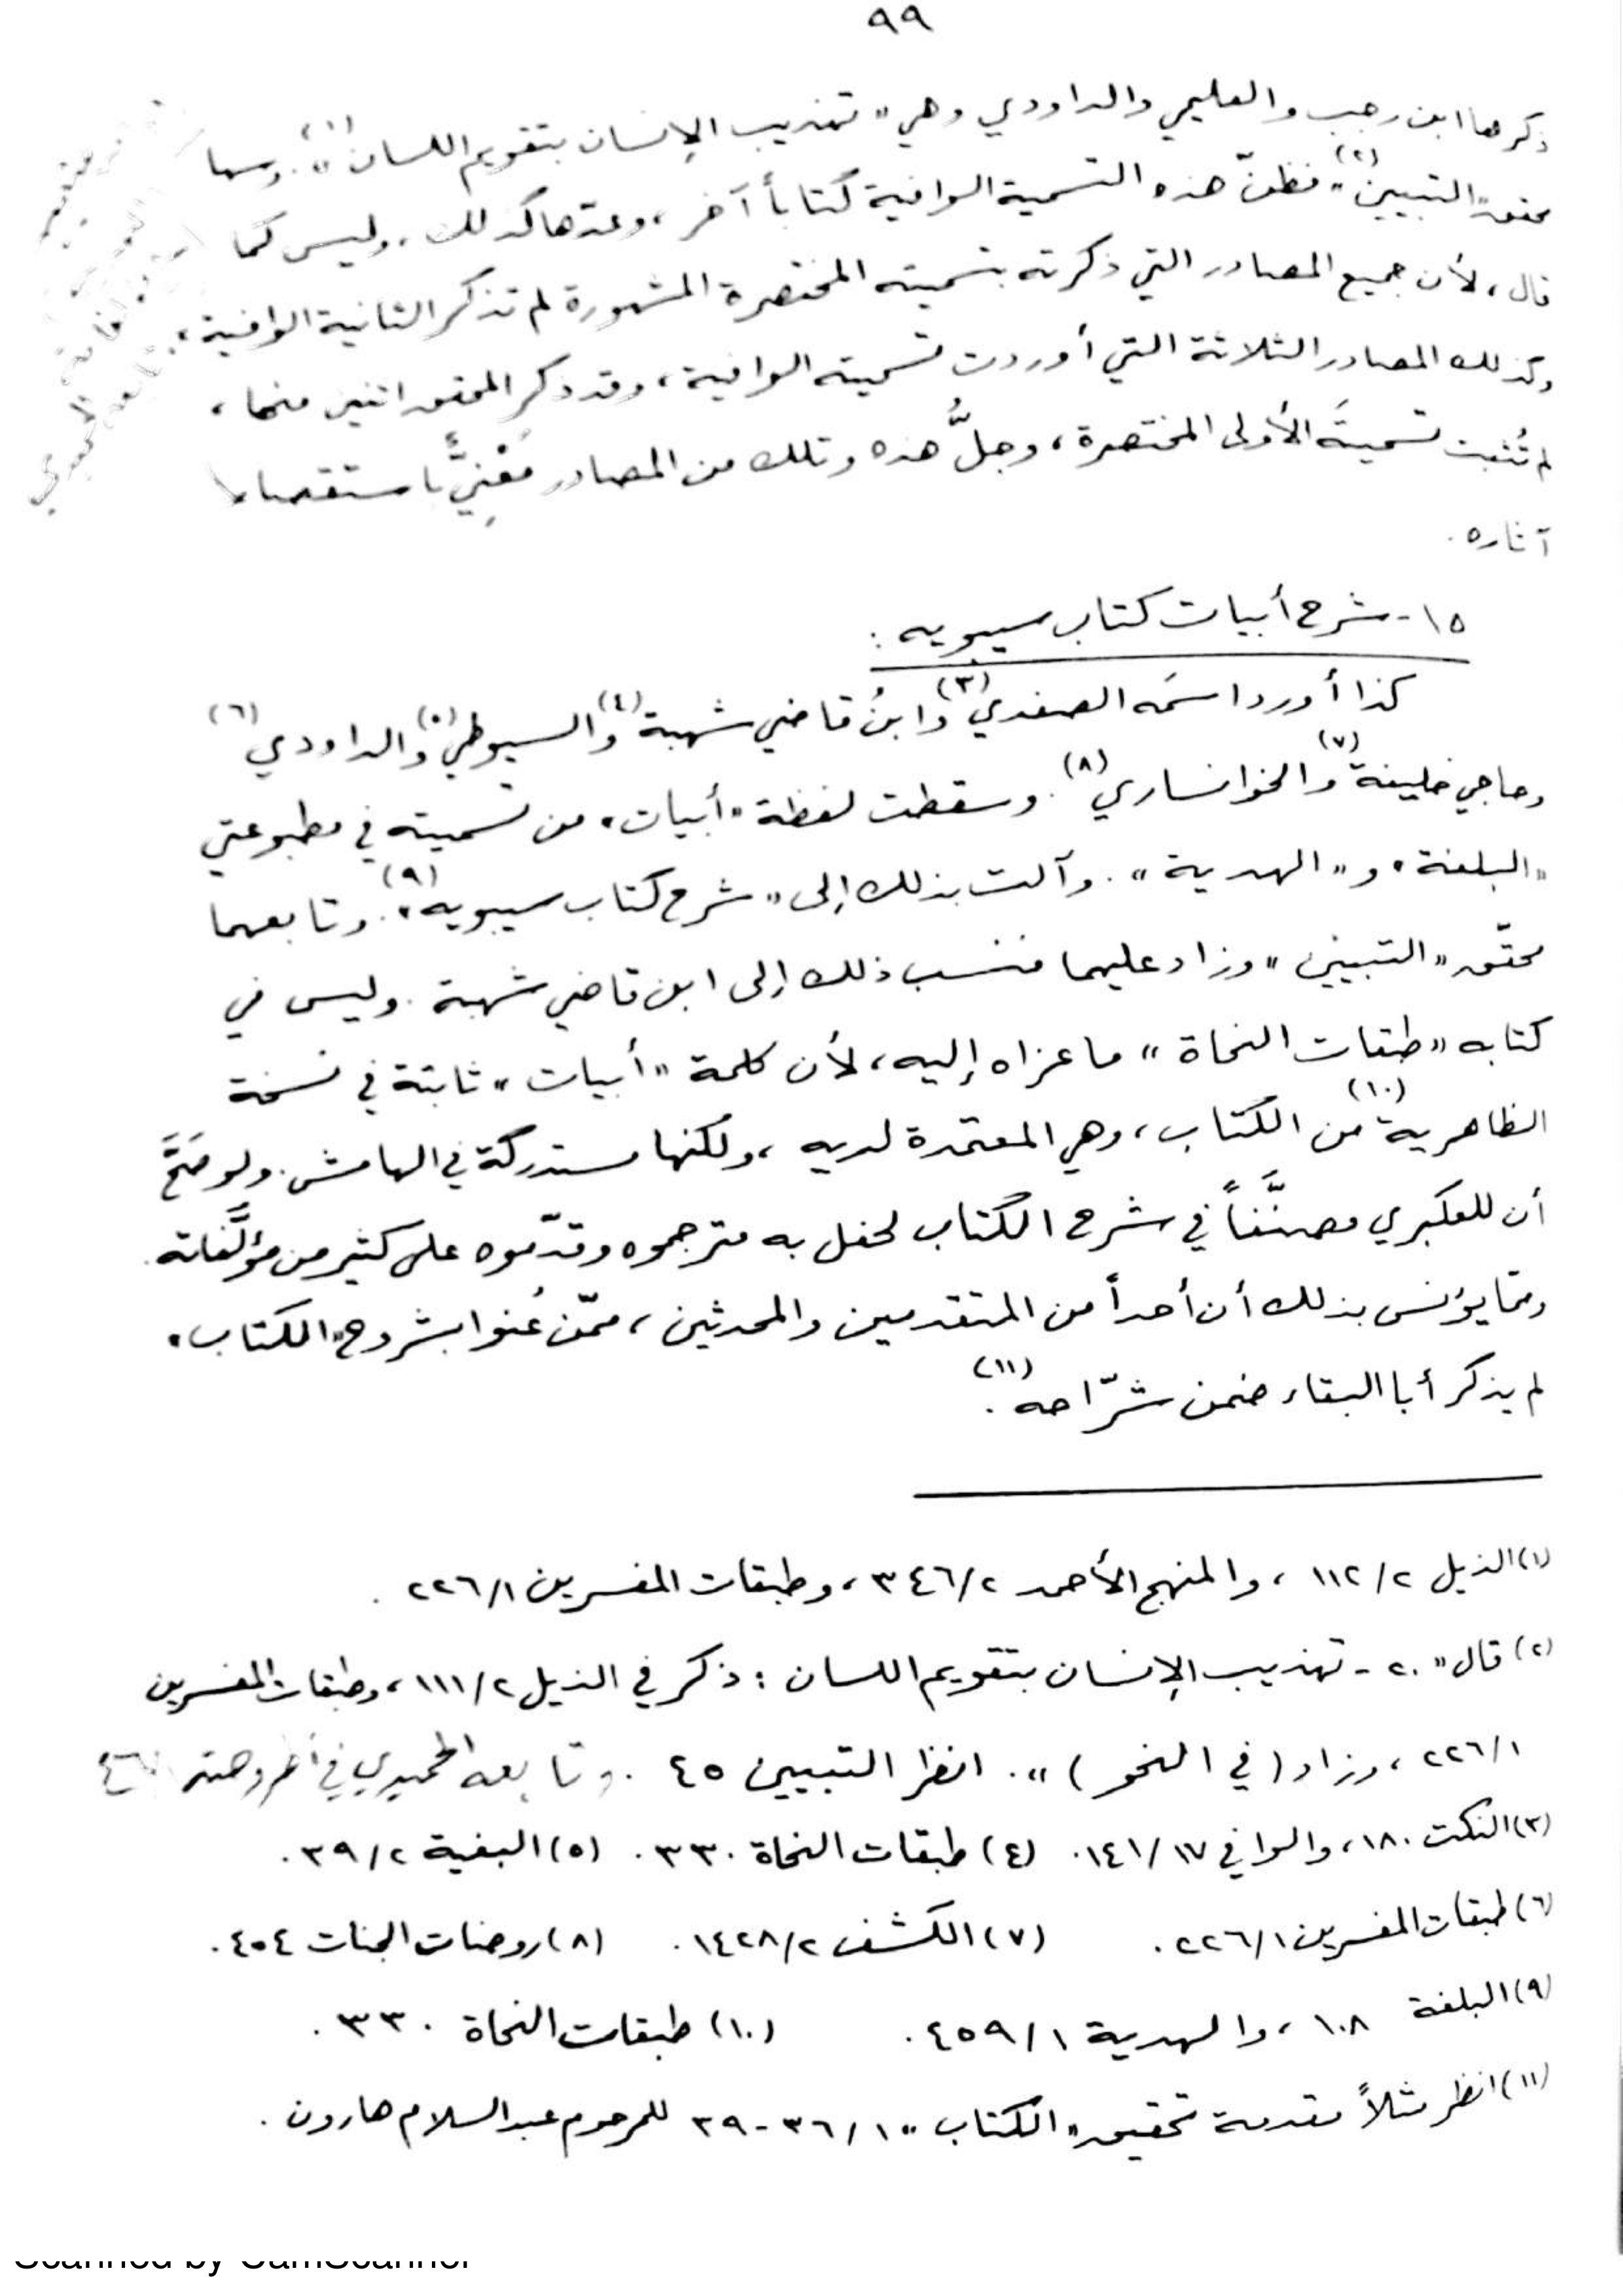 ٩٩
ذكرها ابن رجب والعليمي والداودي وهي «تهذيب الإنسان بتقويم اللسان»(١). وسها
محقق «التبيين»(٢) فظنّ هذه التسمية الوافية كتاباً آخر، وعدّها كذلك، وليس كما
قال، لأن جميع المصادر التي ذكرته بتسميته المختصرة المشهورة لم تذكر الثانية الوافية،
وكذلك المصادر الثلاثة التي أوردت تسميته الوافية، وقد ذكر المحقق اثنين منها،
لم تُثبت تسميتَه الأولى المختصرة، وجلُّ هذه وتلك من المصادر مَعْنِيٌّ باستقصاء
آثاره.
١٥- شرح أبيات كتاب سيبويه:
كذا أورد اسمَه الصفدي(٣) وابنُ قاضي شهبة(٤) والسيوطي(٥) والداودي(٦)
وحاجي خليفة(٧) والخوانساري(٨). وسقطت لفظة «أبيات» من تسميته في مطبوعتي
«البلغة» و«الهدية». وآلت بذلك إلى «شرح كتاب سيبويه»(٩). وتابعهما
محقّق «التبيين» وزاد عليهما فنسب ذلك إلى ابن قاضي شهبة. وليس في
كتابه «طبقات النحاة» ما عزاه إليه، لأن كلمة «أبيات» ثابتة في نسخة
الظاهرية(١٠) من الكتاب، وهي المعتمدة لديه، ولكنها مستدركة في الهامش. ولو صَحَّ
أن للعكبري مصنَّفاً في شرح الكتاب لحفل به مترجموه وقدّموه على كثير من مؤلَّفاته.
وممّا يؤنس بذلك أن أحداً من المتقدمين والمحدثين، ممّن عُنوا بشروح «الكتاب»
لم يذكر أبا البقاء ضمن شرّاحه(١١).
(١) الذيل ١١٢/٢، والمنهج الأحمد ٣٤٦/٢، وطبقات المفسرين ٢٢٦/١.
(٢) قال «٢٠- تهذيب الإنسان بتقويم اللسان: ذكر في الذيل ١١١/٢، وطبقات المفسرين
٢٢٦/١، وزاد (في النحو)». انظر التبيين ٤٥. وتابعه الحميدي في أطروحته
(٣) النكت ١٨٠، والوافي ١٤١/١٧. (٤) طبقات النحاة ٣٣٠. (٥) البغية ٣٩/٢.
(٦) طبقات المفسرين ٢٢٦/١. (٧) الكشف ١٤٢٨/٢. (٨) روضات الجنات ٤٥٤.
(٩) البلغة ١٠٨، والهدية ٤٥٩/١. (١٠) طبقات النحاة ٣٣٠.
(١١) انظر مثلاً مقدمة تحقيق «الكتاب» ٣٦/١-٣٩ للمرحوم عبد السلام هارون.
Scanned by CamScanner